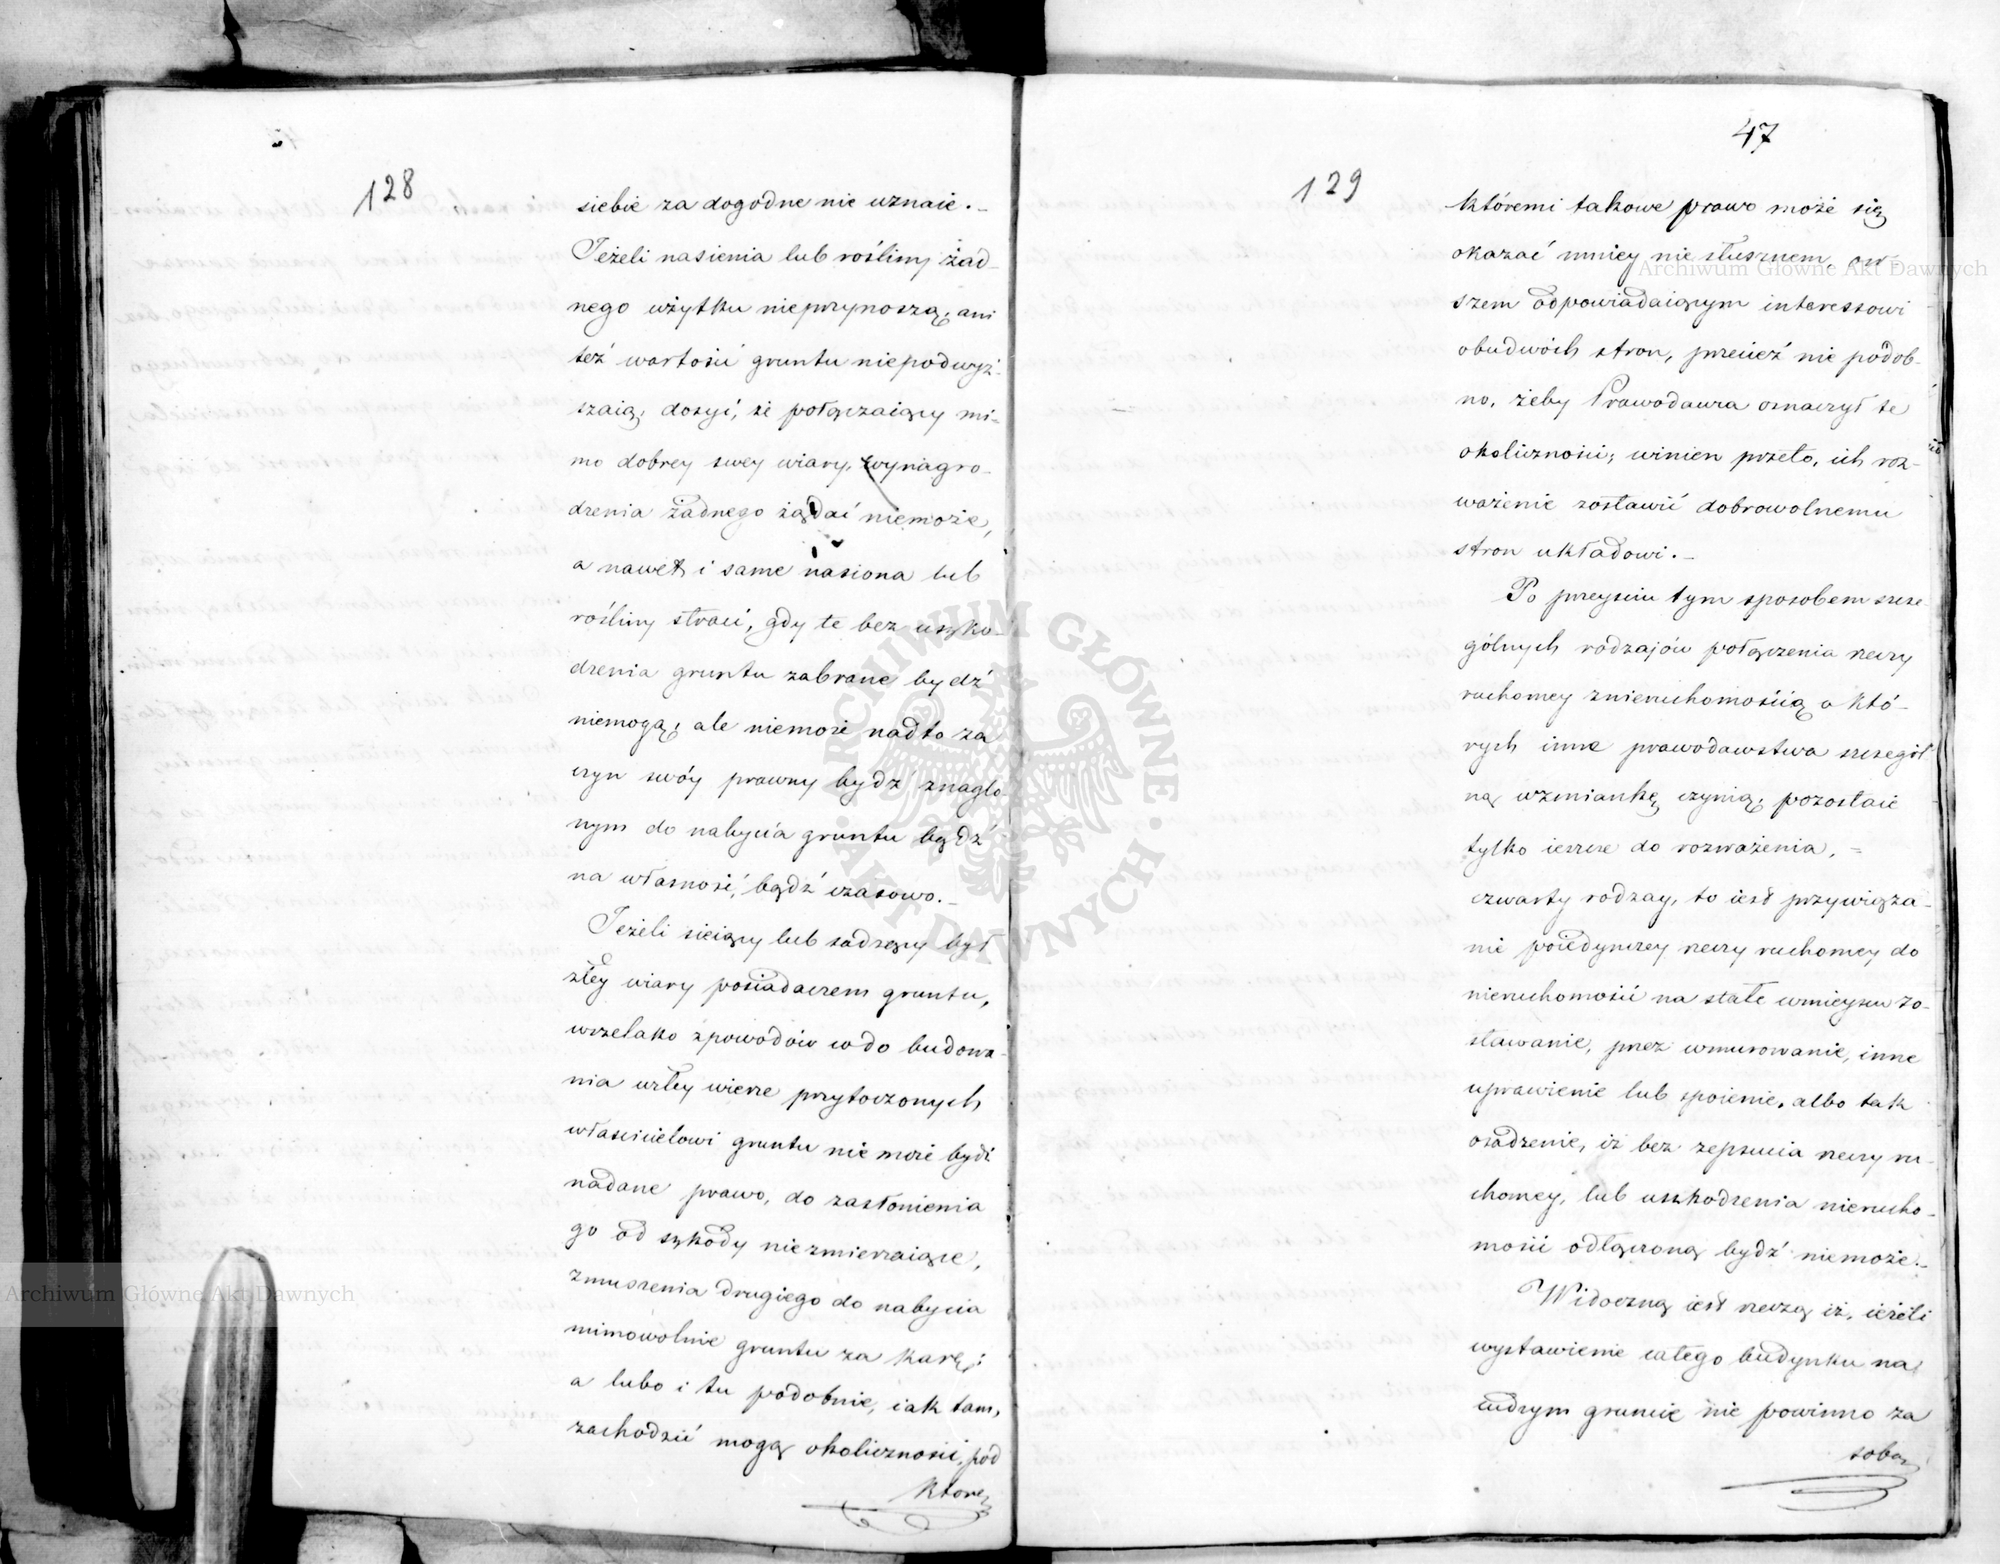 128
siebie za dogodne nie uznaie.
Jeżeli nasienia lub rośliny żad-
nego użytku nieprzynoszą, ani
też wartości gruntu niepodwyż-
szaią, dosyć, że połączaiący mi-
mo dobrey swey wiary, wynagro-
dzenia żadnego żądać niemoże,
a nawet i same nasiona lub
rośliny straci, gdy te bez uszko-
dzenia gruntu zabrane bydź
niemogą; ale niemoże nadto za
czyn swóy prawny bydź znaglo-
nym do nabycia gruntu bądź
na własność, bądź czasowo.
Jeżeli sieiący lub sadzący był
złey wiary posiadaczem gruntu,
wszelako z powodów co do budowa-
nia w złey wierze przytoczonych
właścicielowi gruntu nie może bydź
nadane prawo, do zasłonienia
go od szkody niezmierzaiące,
zmuszenia drugiego do nabycia
mimowolnie gruntu za karę;
a lubo i tu podobnie, iak tam,
zachodzić mogą okoliczności, pod
które
47
129
któremi takowe prawo może się
okazać mniey niesłusznem, ow-
szem odpowiadaiącym interessowi
obudwóch stron, przecież nie podob-
no, żeby Prawodawca oznaczył te
okoliczności; winien przeto, ich roz-
ważenie zostawić dobrowolnemu
stron układowi.
Po przeyściu tym sposobem szcze-
gólnych rodzajów połączenia rzeczy
ruchomey z nieruchomością o któ-
rych inne prawodawstwa szczegól-
ną wzmiankę czynią; pozostaie
tylko ieszcze do rozważenia,
czwarty rodzay, to iest przywiąza-
nie poiedynczey rzeczy ruchomey do
nieruchomości na stałe w mieyscu zo-
stawanie, przez wmurowanie, inne
uprawienie lub spoienie, albo tak
osadzenie, iż bez zepsucia rzeczy ru-
chomey, lub uszkodzenia nierucho-
mości odłączoną bydź niemoże.
Widoczną iest rzeczą iż, ieżeli
wystawienie całego budynku na
cudzym gruncie nie powinno za
sobą
Archiwum Główne Akt Dawnych
Archiwum Główne Akt Dawnych
ARCHIWUM GŁÓWNE · AKT DAWNYCH ·